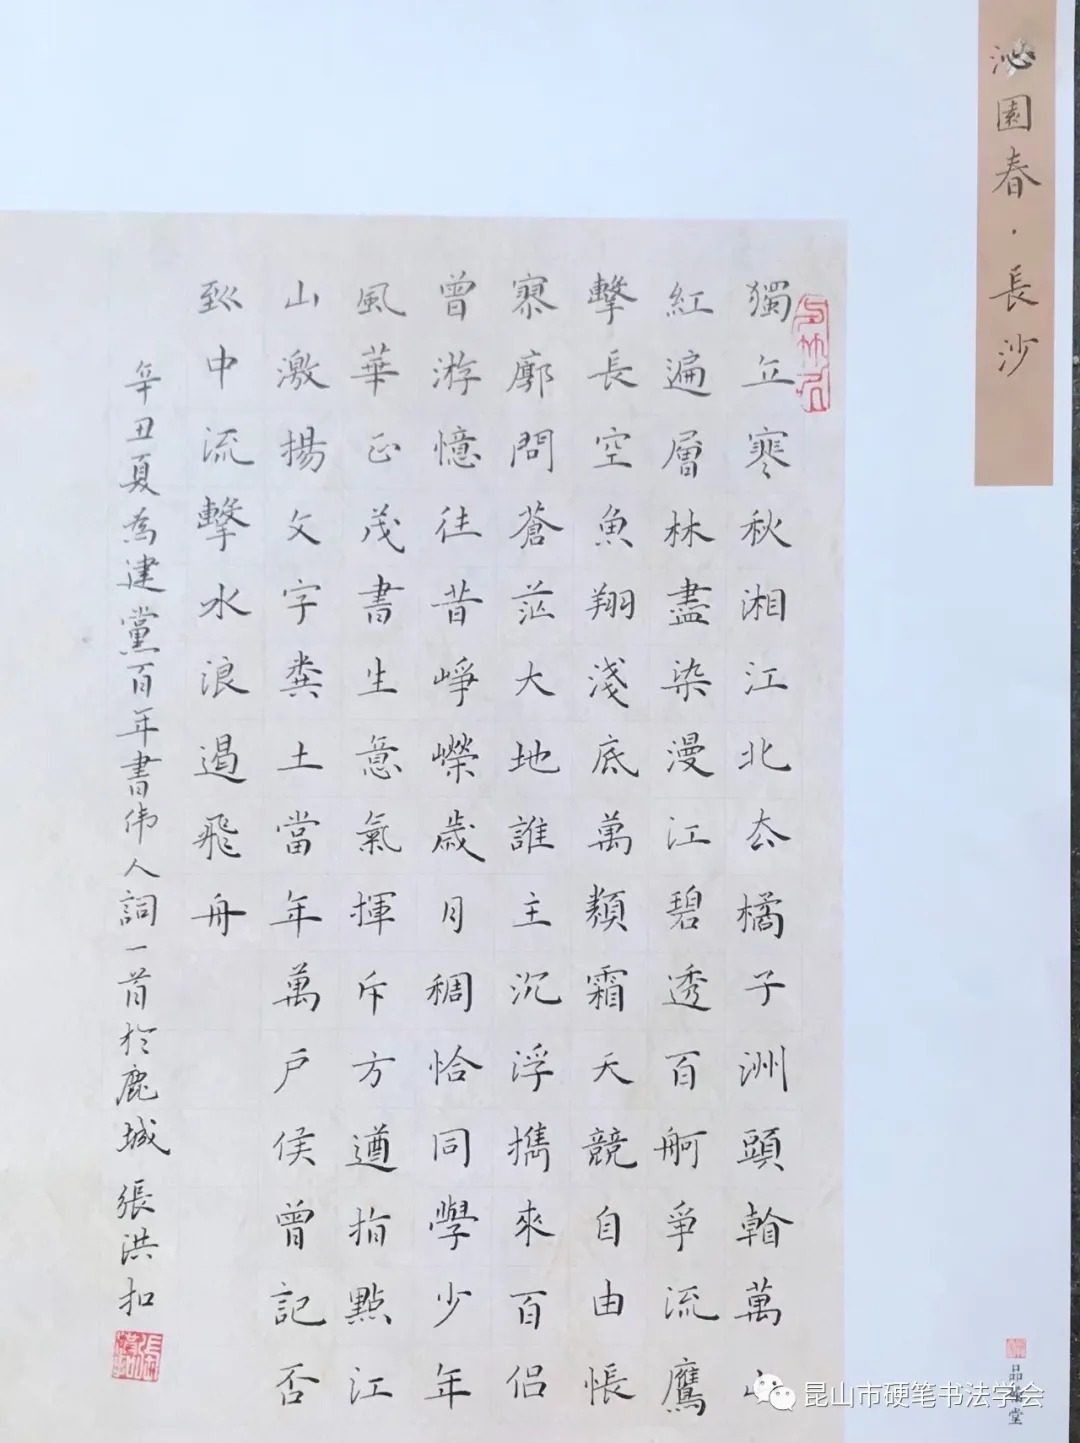 沁園春·長沙
獨立寒秋湘江北去橘子洲頭看萬山
紅遍層林盡染漫江碧透百舸爭流鷹
擊長空魚翔淺底萬類霜天競自由悵
寥廓問蒼茫大地誰主沉浮攜來百侶
曾游憶往昔崢嶸歲月稠恰同學少年
風華正茂書生意氣揮斥方遒指點江
山激揚文字糞土當年萬戶侯曾記否
到中流擊水浪遏飛舟
辛丑夏為建黨百年書偉人詞一首於鹿城 張洪扣
昆山市硬笔书法学会